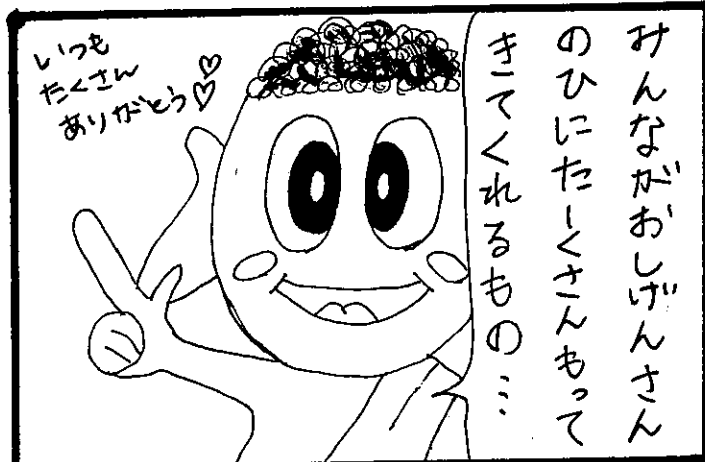 みんながおしげんさん
のひにたーくさんもって
きてくれるもの…
いつも
たくさん
ありがとう♡♡